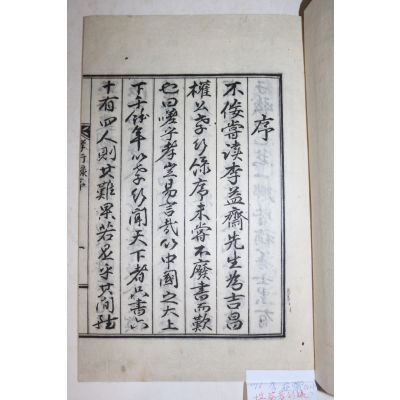 序
不佞嘗讀李益齋先生為吉昌
權公孝行錄序未嘗不廢書而歎
也曰乎孝豈易言哉以中國之大上
下千餘年以孝行聞天下者只書六
十有四人則其難果若是乎其間
孝行錄序